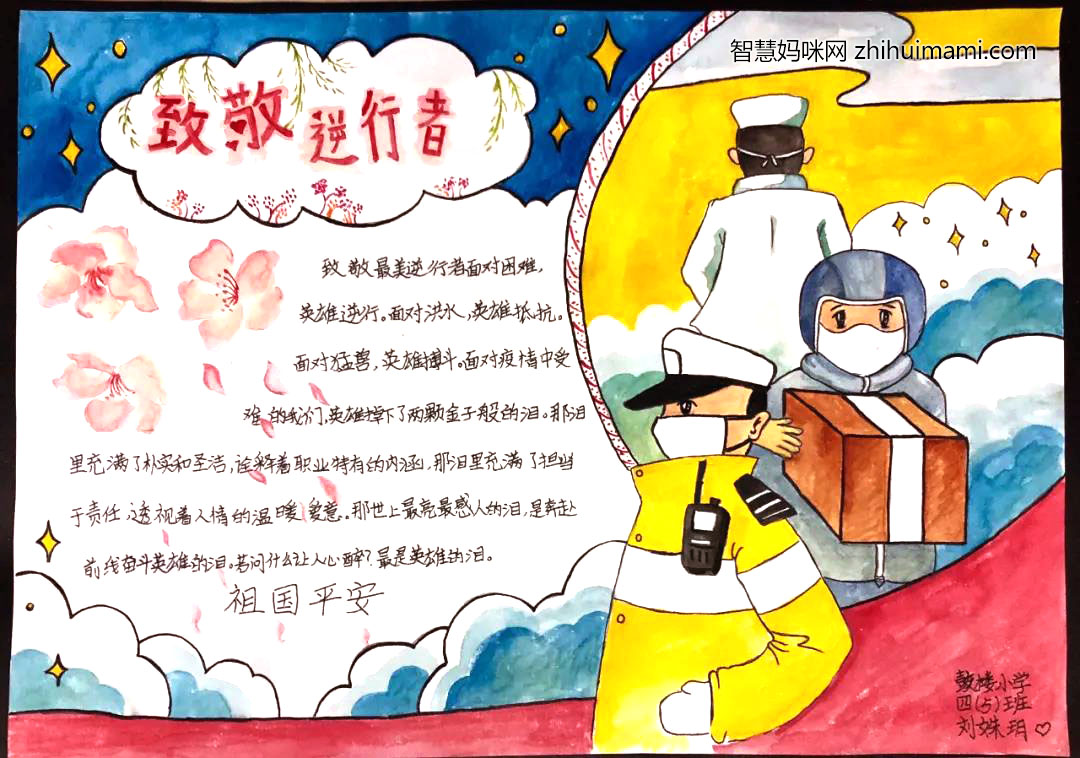 智慧妈咪网 zhihuimami.com
致敬逆行者
致敬最美逆行者面对困难,
英雄逆行。面对洪水,英雄抵抗。
面对猛兽,英雄搏斗。面对疫情中受
难的我们,英雄掉下了两颗金子般的泪。那泪
里充满了朴实和圣洁,诠释着职业特有的内涵,那泪里充满了担当
于责任,透视着人情的温暖爱意。那世上最亮最感人的泪,是奔赴
前线奋斗英雄的泪。若问什么让人心醉?最是英雄的泪。
祖国平安
鼓楼小学
四(5)班
刘姝玥